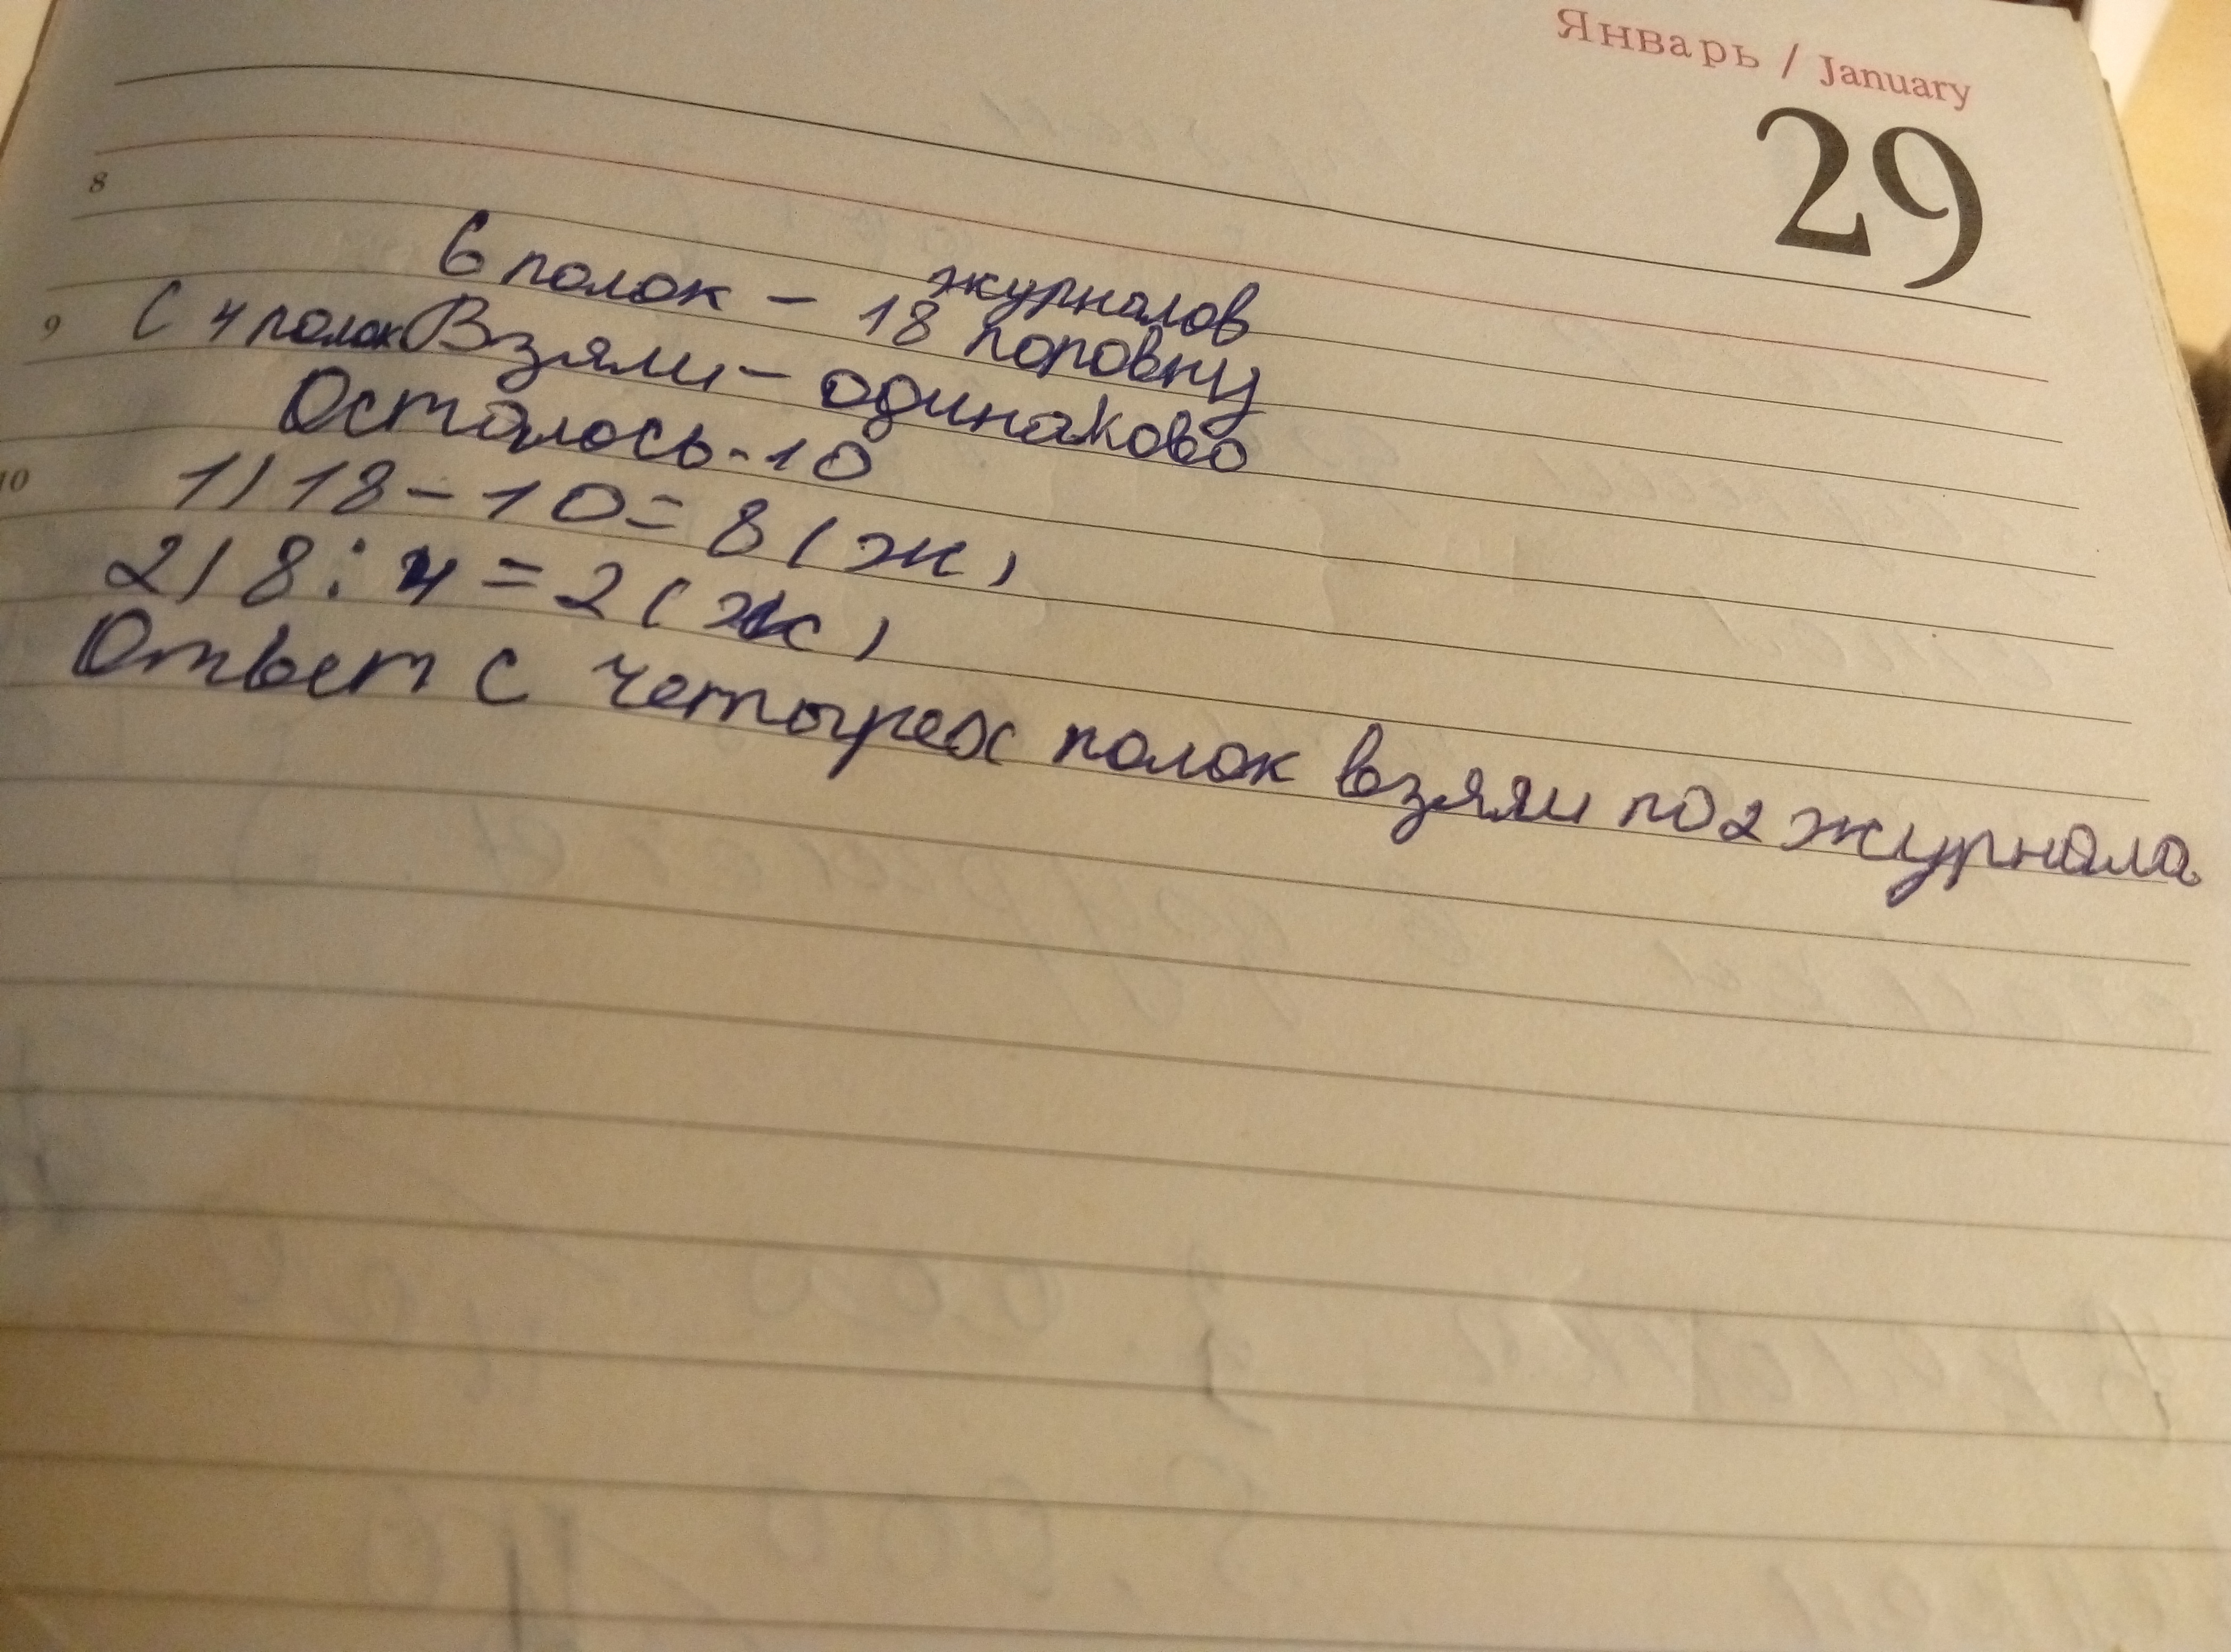 Январь / January
29
8
6 полок - 18 журналов поровну
9
С 4 полок Взяли - одинаково
Осталось - 10
10
1) 18 - 10 = 8 (ж)
2) 8 : 4 = 2 (ж)
Ответ с четырех полок взяли по 2 журнала